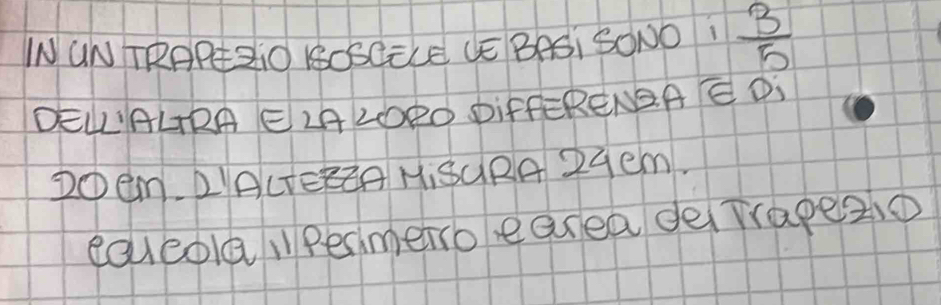 IN UN TRAPEZIO ISOSCELE LE BASI SONO i 3/5
DELL'ALTRA E LA LORO DIFFERENZA E Di
20 cm. L'ALTEZZA MISURA 24 cm.
calcola il Perimetro e area del Trapezio